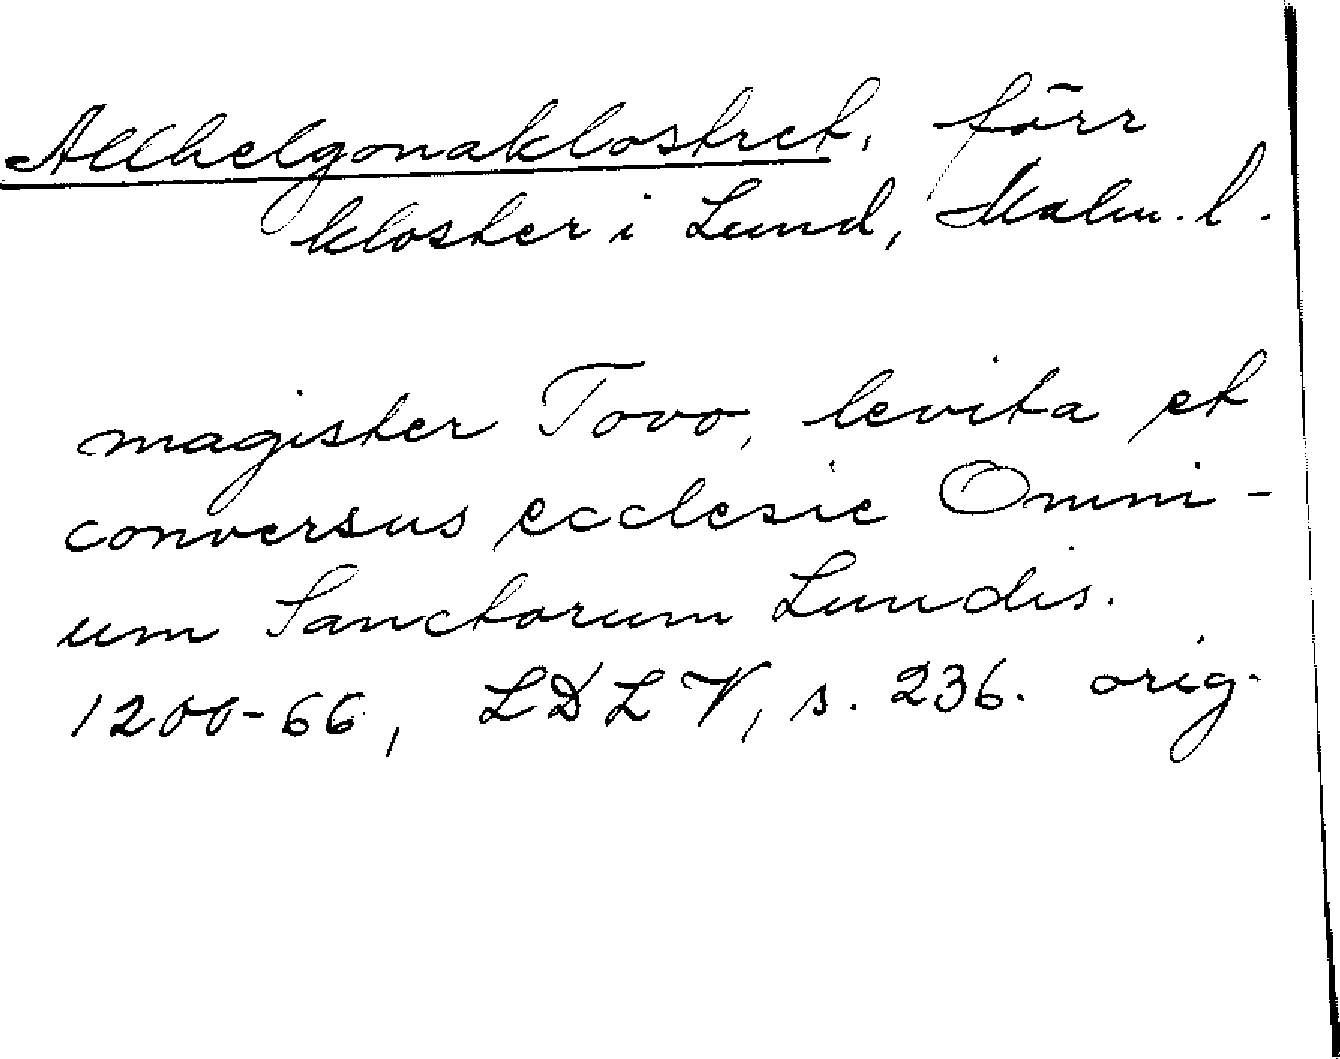 Allhelgonaklostret, förr
kloster i Lund, Malm. l.
magister Tovo, levita et
conversus ecclesie Omni-
um Sanctorum Lundis.
1200-66, LDLV, s. 236. orig.